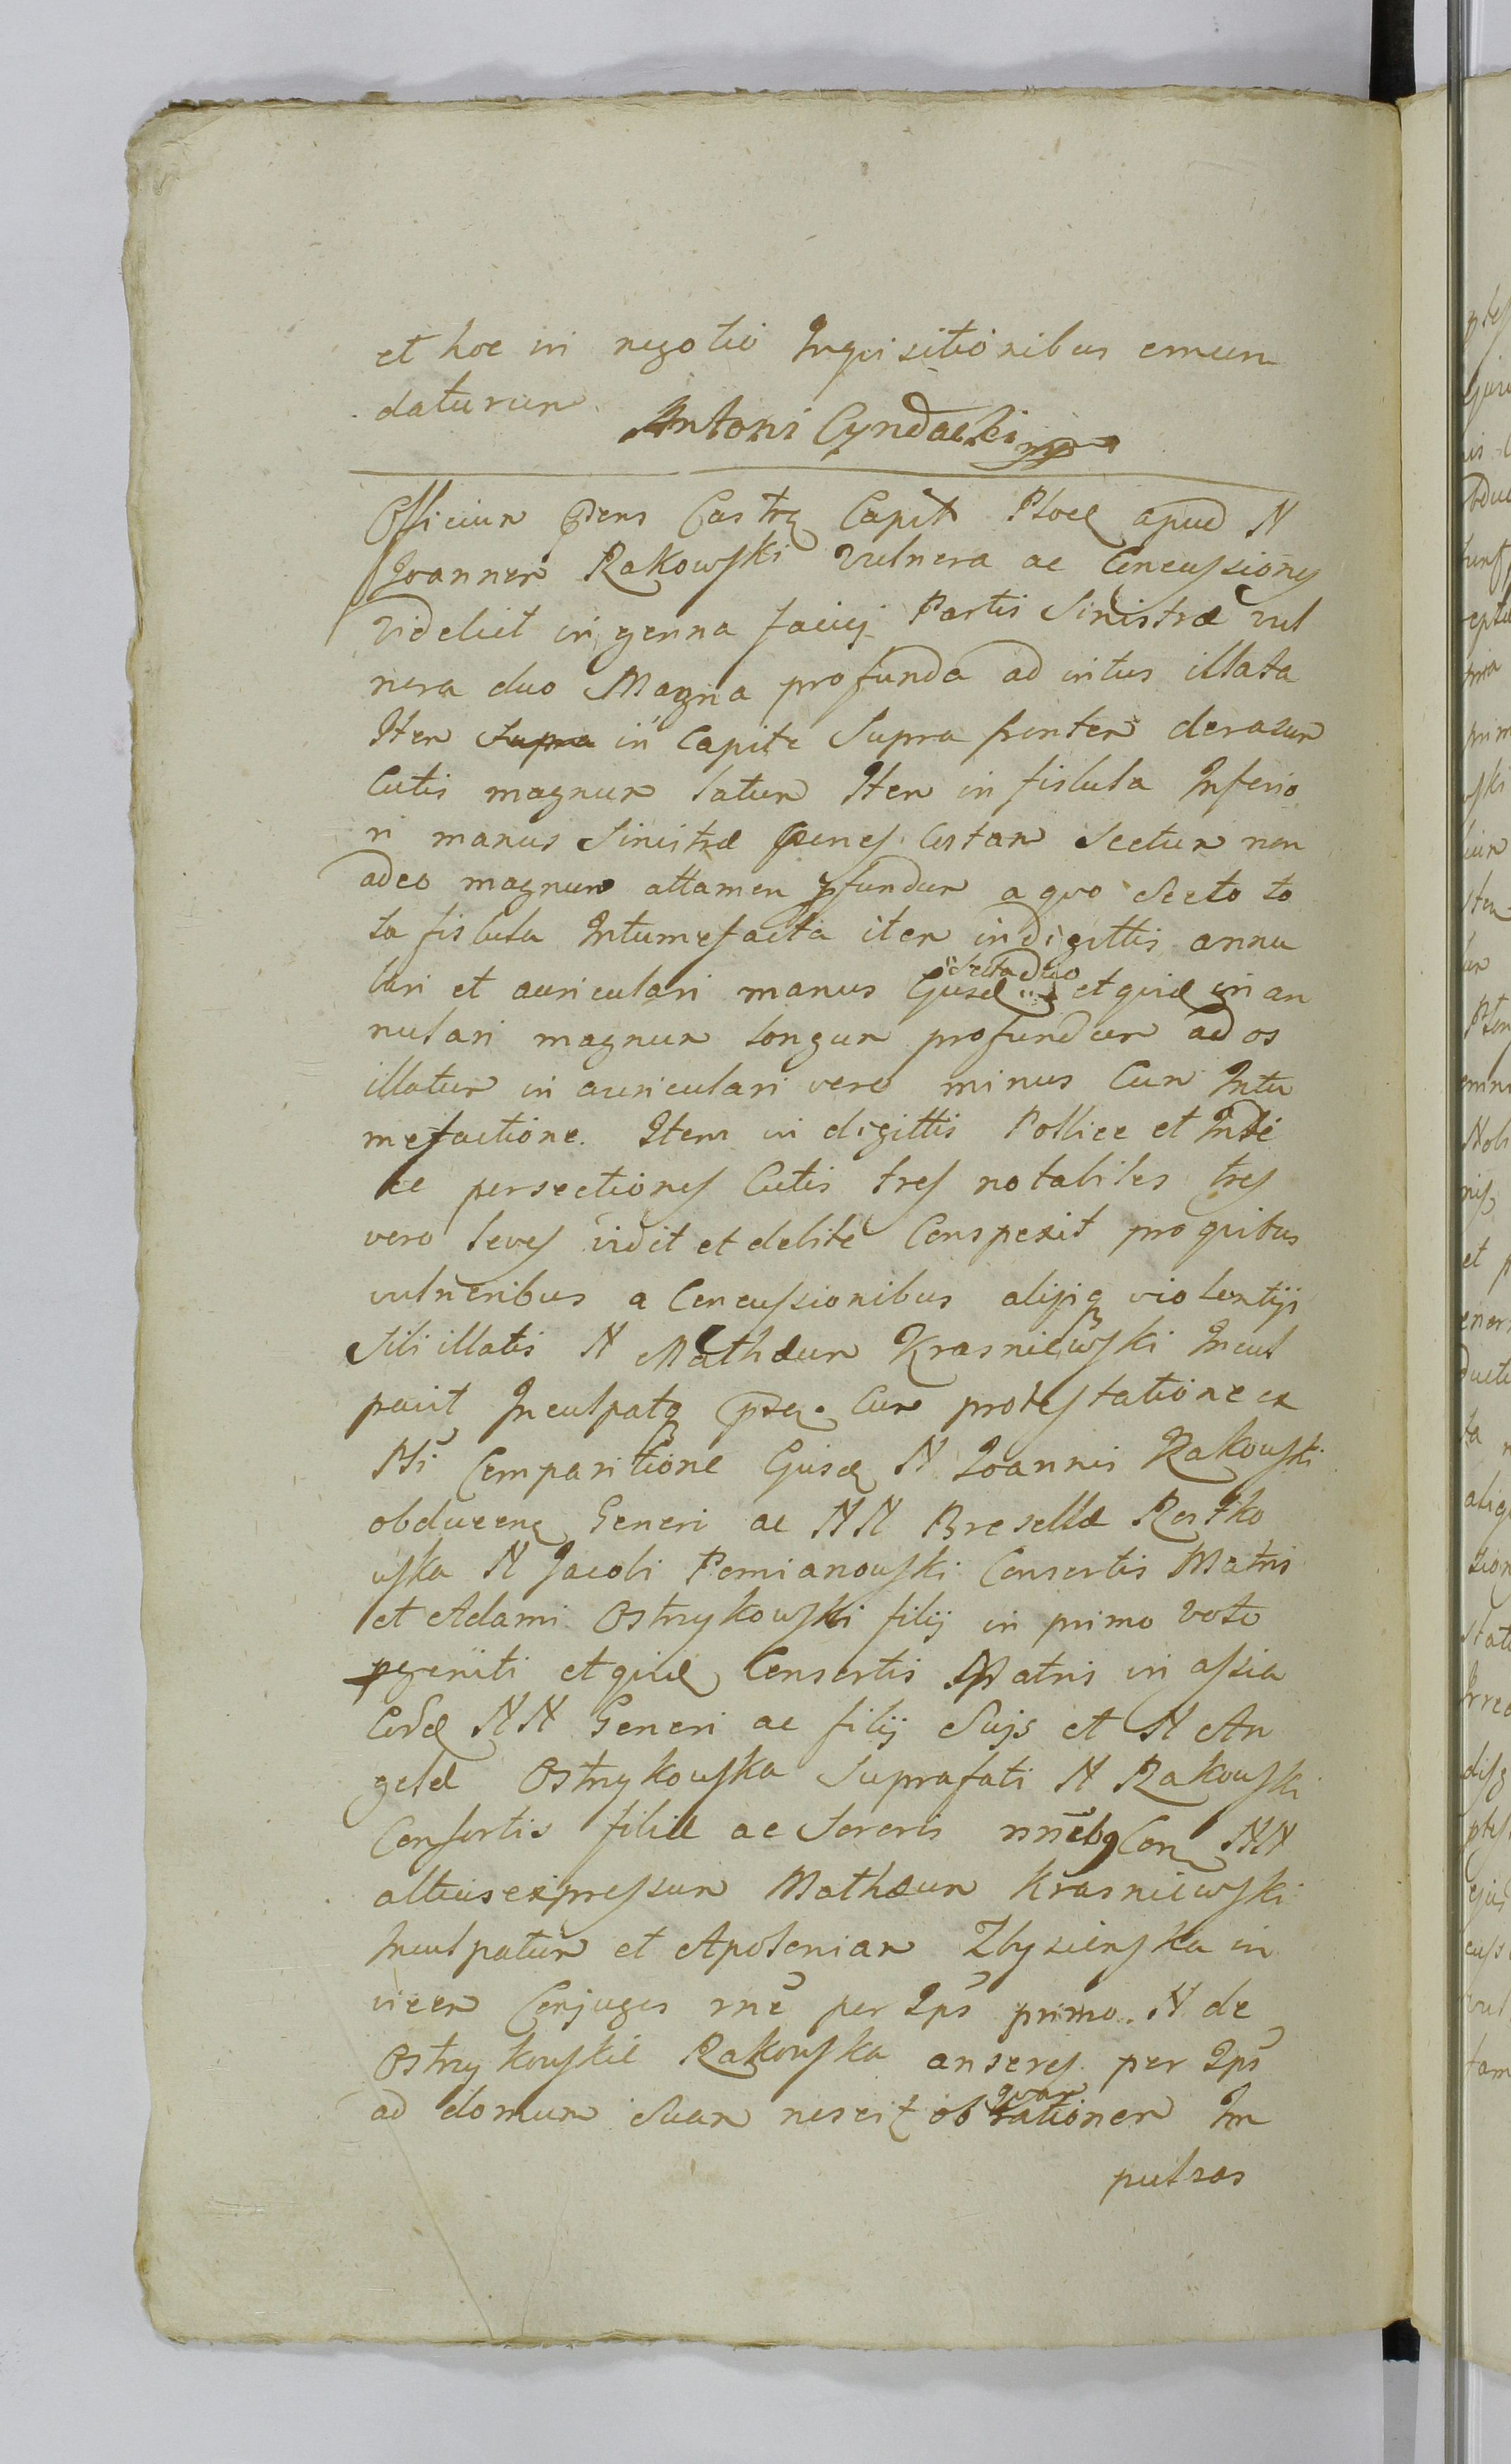 et hoc in negotio Inquisitionibus emun
daturum.
Antoni Cyndacki mp
Officium Pñns Castrȩ Capit Ploc apud N
Joannem Rakowski vulnera ac Concussiones
videlict in genna faciej Partis Sinistræ vul
nera duo Magna profunda ad intus illata
Item Supra in Capite Supra frontem derasum
Cutis magnum latum Item in fistula Inferio
ri manus Sinistræ penes Costam Sectum non
adeo magnum attamen pfundum a quo Secto to
ta fistula Intumefacta item in digittis annu
lari et auriculari manus Ejusd Secta duo et quid in an
nulari magnum longum profundum ad os
illatum in auriculari vero minus Cum Intu
mefactione. Item in digittis Pollice et Indi
ce persectiones Cutis tres notabiles tres
vero leves vidit et debite Conspexit pro quibus
vulneribus a Concussionibus alijsq violentijs
Sibi illatis N Mathæum Krasniewski Incul
pavit Inculpatq Cum protestatione ex
Comparitione Ejusd N Joannis Rakowski
obducen Generi ac NN Bresellæ Rostko
wska N Jacobi Pomianowski Consortis Matris
et Adami Ostrzykowski filij in primo voto
pgeniti et quid Consortis Matris in assia
Cord NN Generi ac filij Sujs et N An
gelæ Ostrzykowska Suprafati N Rakowski
Consortis filiæ ac Sororis Con NN
altius expressum Mathæum Krasniewski
Inculpatum et Apoloniam Zbyzienska in
vicem Conjuges rnē per Ips primo. N de
Ostrzykowskie Rakowska anseres per Ips
ad domum Suam nescit ob quam rationem Im
pulsos